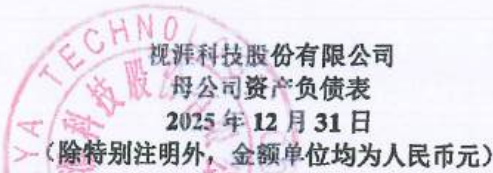 视涯科技股份有限公司
母公司资产负债表
2025 年 12 月 31 日
（除特别注明外，金额单位均为人民币元）
YA TECHNO
科技股